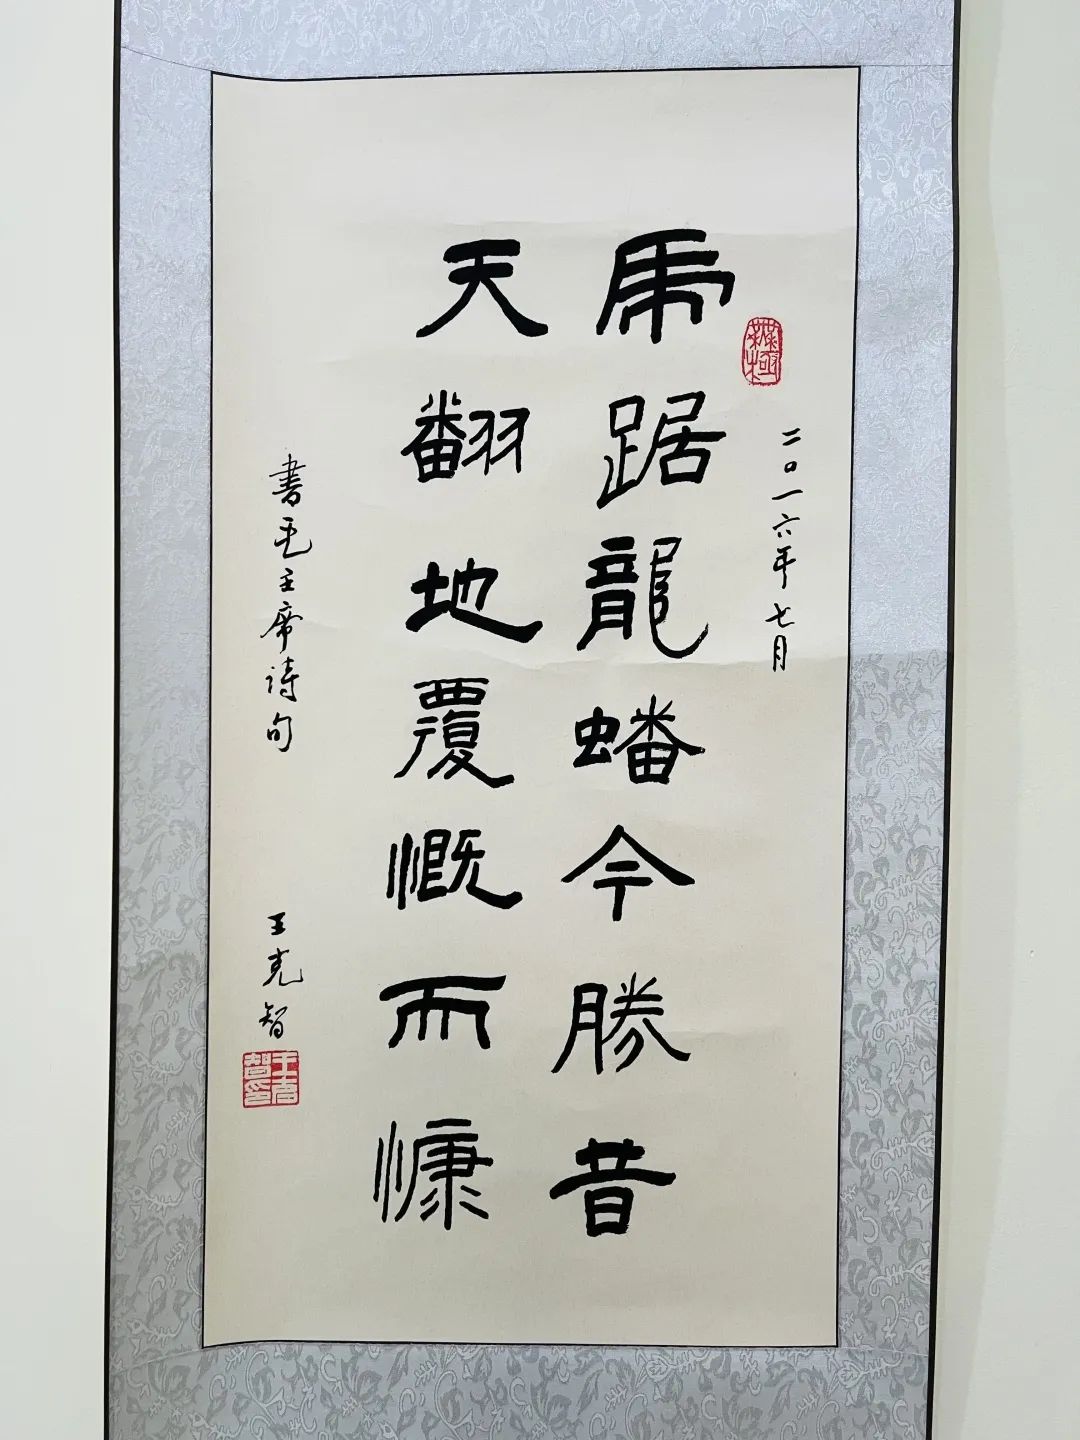 二〇一六年七月
無極
虎踞龍蟠今勝昔
天翻地覆慨而慷
書毛主席詩句
王克智
王克智印